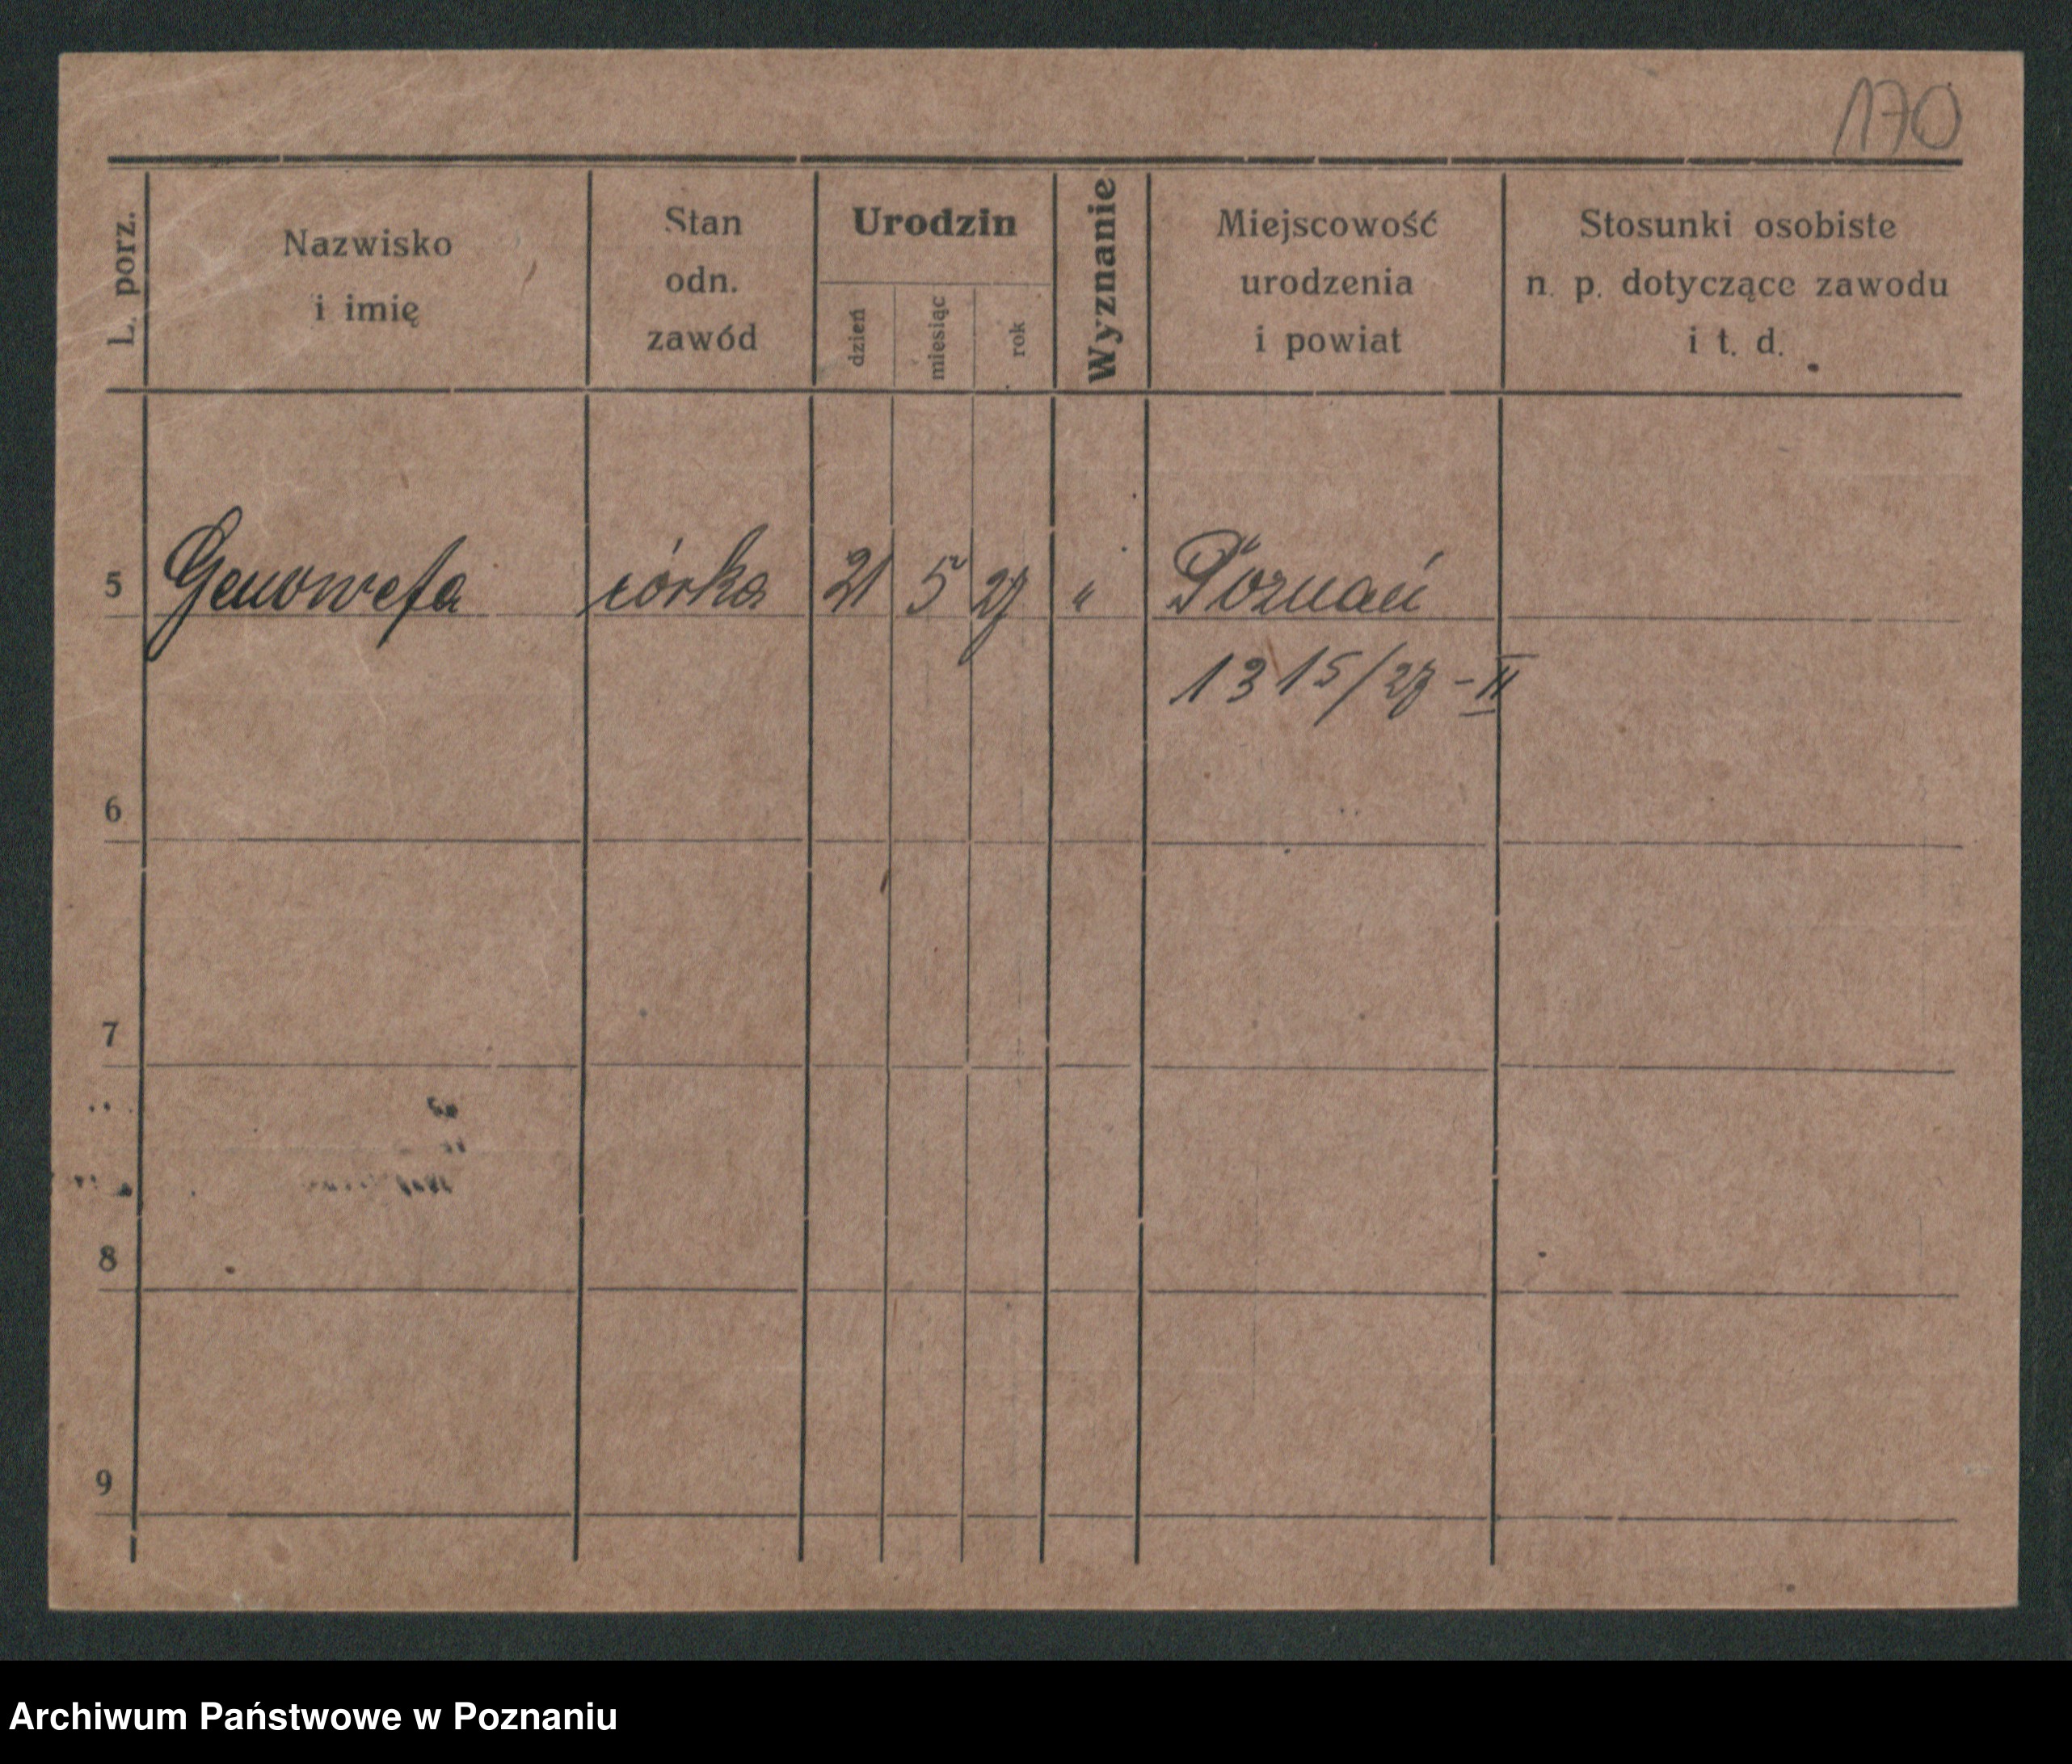 170
L. porz.
Nazwisko
i imię
Stan
odn.
zawód
Urodzin
dzień
miesiąc
rok
Wyznanie
Miejscowość
urodzenia
i powiat
Stosunki osobiste
n. p. dotyczące zawodu
i t. d.
5 Genowefa córka 21 5 27 " Poznań
1315/27 - II
6
7
8
9
Archiwum Państwowe w Poznaniu